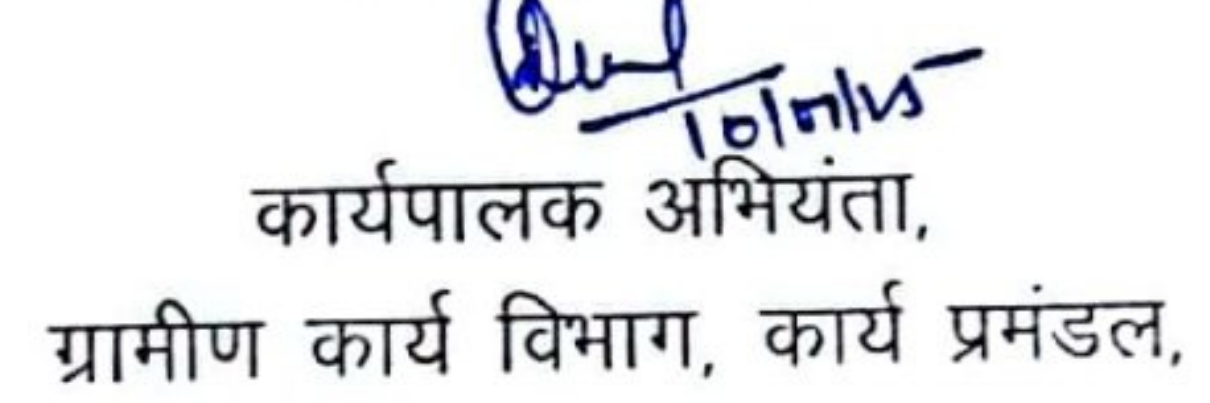 कार्यपालक अभियंता,
ग्रामीण कार्य विभाग, कार्य प्रमंडल,